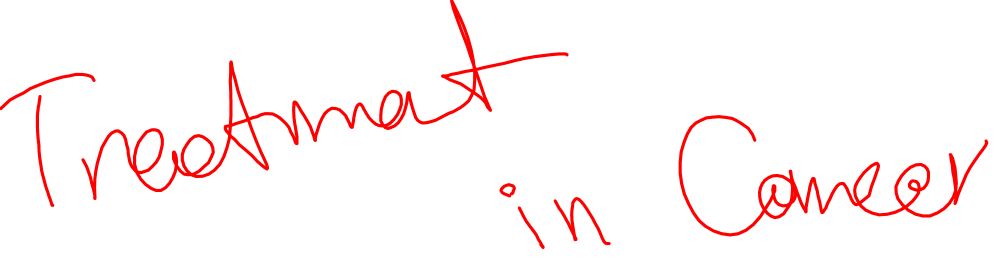 Treatment
in Cancer